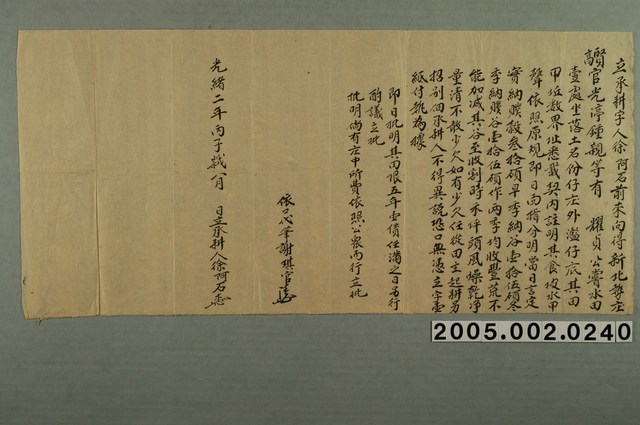 立承耕字人徐阿石前來向得新北勢庄
賢官光淳鍾親等有 耀貞公嘗水田
壹處坐落土名份仔庄外濫仔底其田
甲位數界址悉載契內註明其食坡水甲
聲依照原規即日面指分明當日言定
實納贌穀叁拾碩早季納谷壹拾伍碩冬
季納贌谷壹拾伍碩作兩季均收豐荒不
能加減其谷至收割時禾坪頭風燥乾淨
量清不敢少欠如有少欠任從田主起耕另
招別佃承耕人不得異說恐口無憑立字壹
紙付執為據
即日批明其田限五年壹價任滿之日另行
酌議立批
批明倘有庄中所費依照公眾而行立批
依口代筆謝琪官
光緒二年丙子歲八月 日立承耕人徐阿石
2005.002.0240